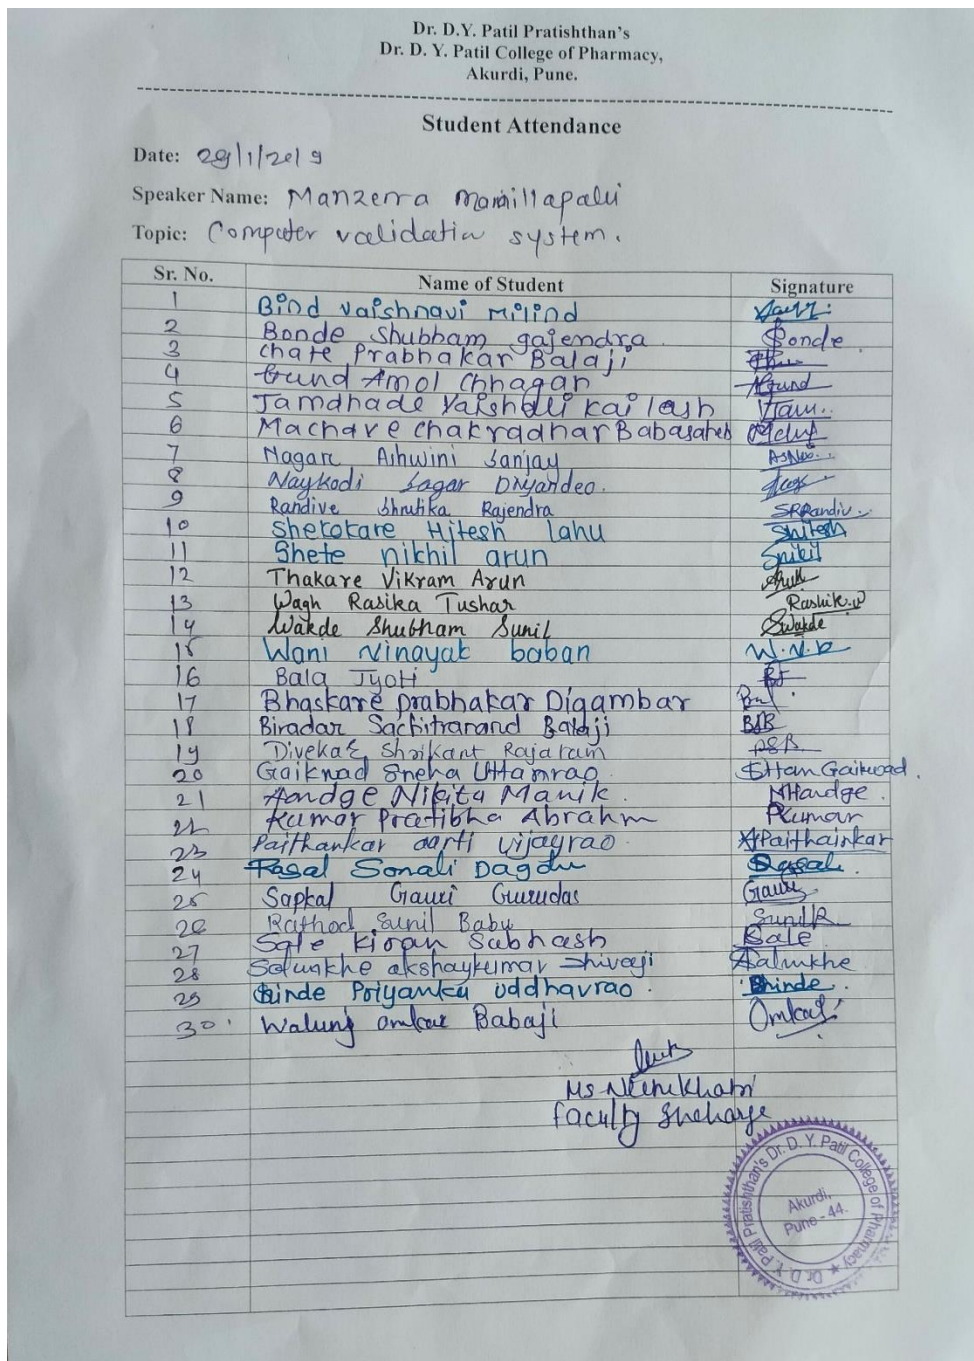 Dr. D.Y. Patil Pratishthan's
Dr. D. Y. Patil College of Pharmacy,
Akurdi, Pune.
Student Attendance
Date: 29/1/2019
Speaker Name: Manzerra
Topic: Computer validation system.
Sr. No. Name of Student Signature
1 Bind vaishnavi Milind
2 Bonde Shubham gajendra Bonde
3 chate Prabhakar Balaji
4 Gund Amol Chhagan AGund
5 Jamdhade Vaishali kailash
6 Machave chakradhar Babasaheb
7 Nagare Ashwini Sanjay
8 Naykodi Sagar Dnyandeo.
9 Randive Shrutika Rajendra SRRandiv.
10 Sherokare Hitesh lahu Shitesh
11 Shete nikhil arun Snikil
12 Thakare Vikram Arun
13 Wagh Rasika Tushar Rashik.w
14 Wakde Shubham Sunil Swakde
15 Wani Vinayak baban
16 Bala Jyoti
17 Bhaskare prabhakar Digambar
18 Biradar Sachitranand Balaji
19 Divekar Shrikant Rajaram
20 Gaikwad Sneha Uttamrao Gaikwad.
21 Handge Nikita Manik. NHandge.
22 Kumar Pratibha Abrahm PKumar
23 Paithankar aarti vijayrao APaithainkar
24 Rasal Sonali Dagdu
25 Sapkal Gauri Gurudas Gauri
26 Rathod Sunil Babu SunilR
27 Sale Kiran Subhash Sale
28 Salunkhe akshaykumar Shivaji Salunkhe
29 Shinde Priyanka Uddhavrao. Shinde.
30. Walunj omkar Babaji Omkar
Ms
faculty Incharge
Dr. D. Y. Patil Pratishthan's Dr. D. Y. Patil College of Pharmacy
Akurdi,
Pune - 44.